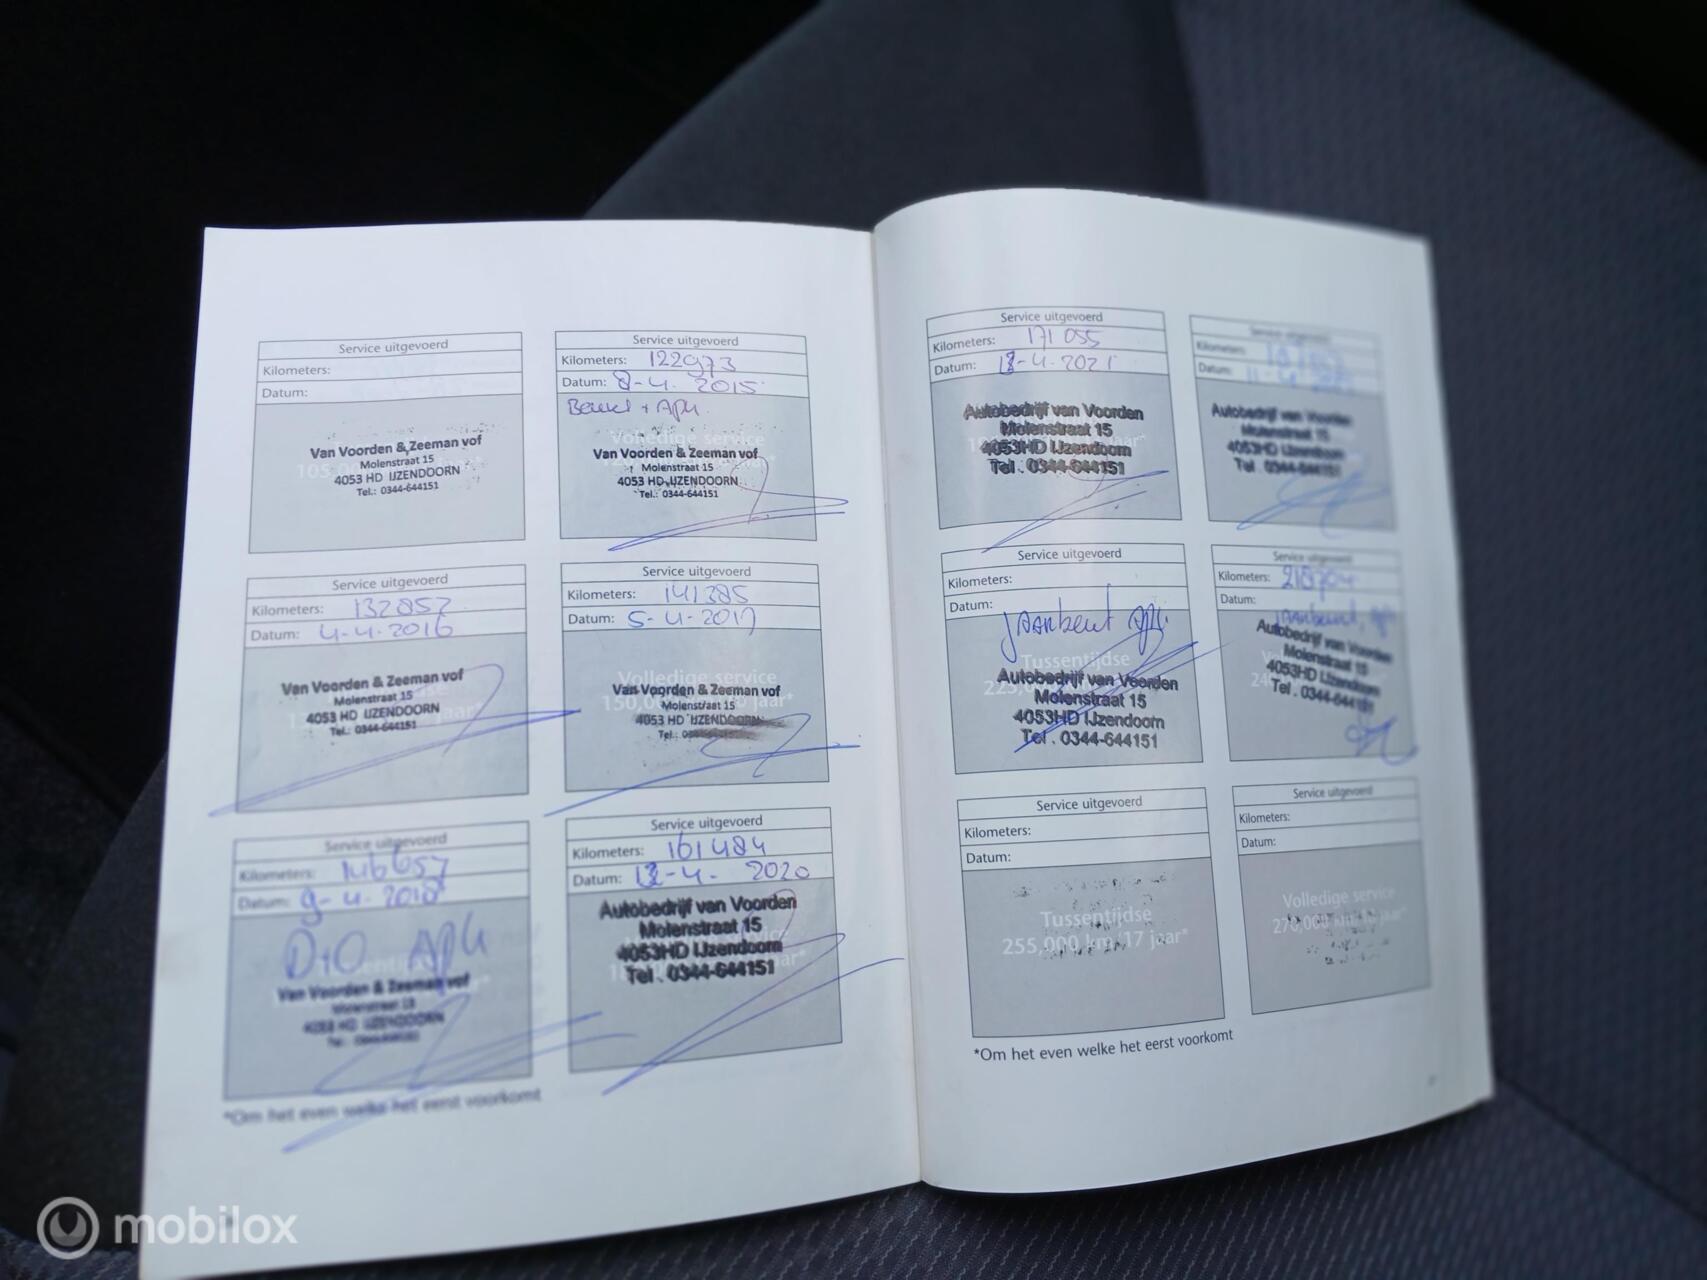 Service uitgevoerd
Kilometers:
Datum:
Van Voorden & Zeeman vof
Molenstraat 15
4053 HD IJZENDOORN
Tel.: 0344-644151
Service uitgevoerd
Kilometers: 122973
Datum: 8-4. 2015
Beurt + Apk.
Volledige service
Van Voorden & Zeeman vof
Molenstraat 15
4053 HD IJZENDOORN
Tel.: 0344-644151
Service uitgevoerd
Kilometers: 132857
Datum: 4-4. 2016
Van Voorden & Zeeman vof
Molenstraat 15
4053 HD IJZENDOORN
Tel.: 0344-644151
Service uitgevoerd
Kilometers: 141385
Datum: 5-4-2017
Volledige service
Van Voorden & Zeeman vof
Molenstraat 15
4053 HD IJZENDOORN
Tel.:
Service uitgevoerd
Kilometers: 146657
Datum: 9-4. 2018
Apk
Van Voorden & Zeeman vof
Molenstraat 15
4053 HD IJZENDOORN
Service uitgevoerd
Kilometers: 161484
Datum: 2020
Autobedrijf van Voorden
Molenstraat 15
4053HD IJzendoorn
Tel. 0344-644151
*Om het even welke het eerst voorkomt
Service uitgevoerd
Kilometers: 171055
Datum: -4-2021
Autobedrijf van Voorden
Molenstraat 15
4053HD IJzendoorn
Tel. 0344-644151
Service uitgevoerd
Kilometers:
Datum:
Autobedrijf van Voorden
Molenstraat 15
4053HD IJzendoorn
Tel. 0344-644151
Service uitgevoerd
Kilometers:
Datum:
Jaarbeurt apk.
Tussentijdse
Autobedrijf van Voorden
Molenstraat 15
4053HD IJzendoorn
Tel. 0344-644151
Service uitgevoerd
Kilometers: 218704
Datum:
Jaarbeurt, apk
Autobedrijf van Voorden
Molenstraat 15
4053HD IJzendoorn
Tel. 0344-644151
Service uitgevoerd
Kilometers:
Datum:
Tussentijdse
255,000 km /17 jaar*
Service uitgevoerd
Kilometers:
Datum:
Volledige service
270,000 km jaar*
*Om het even welke het eerst voorkomt
mobilox